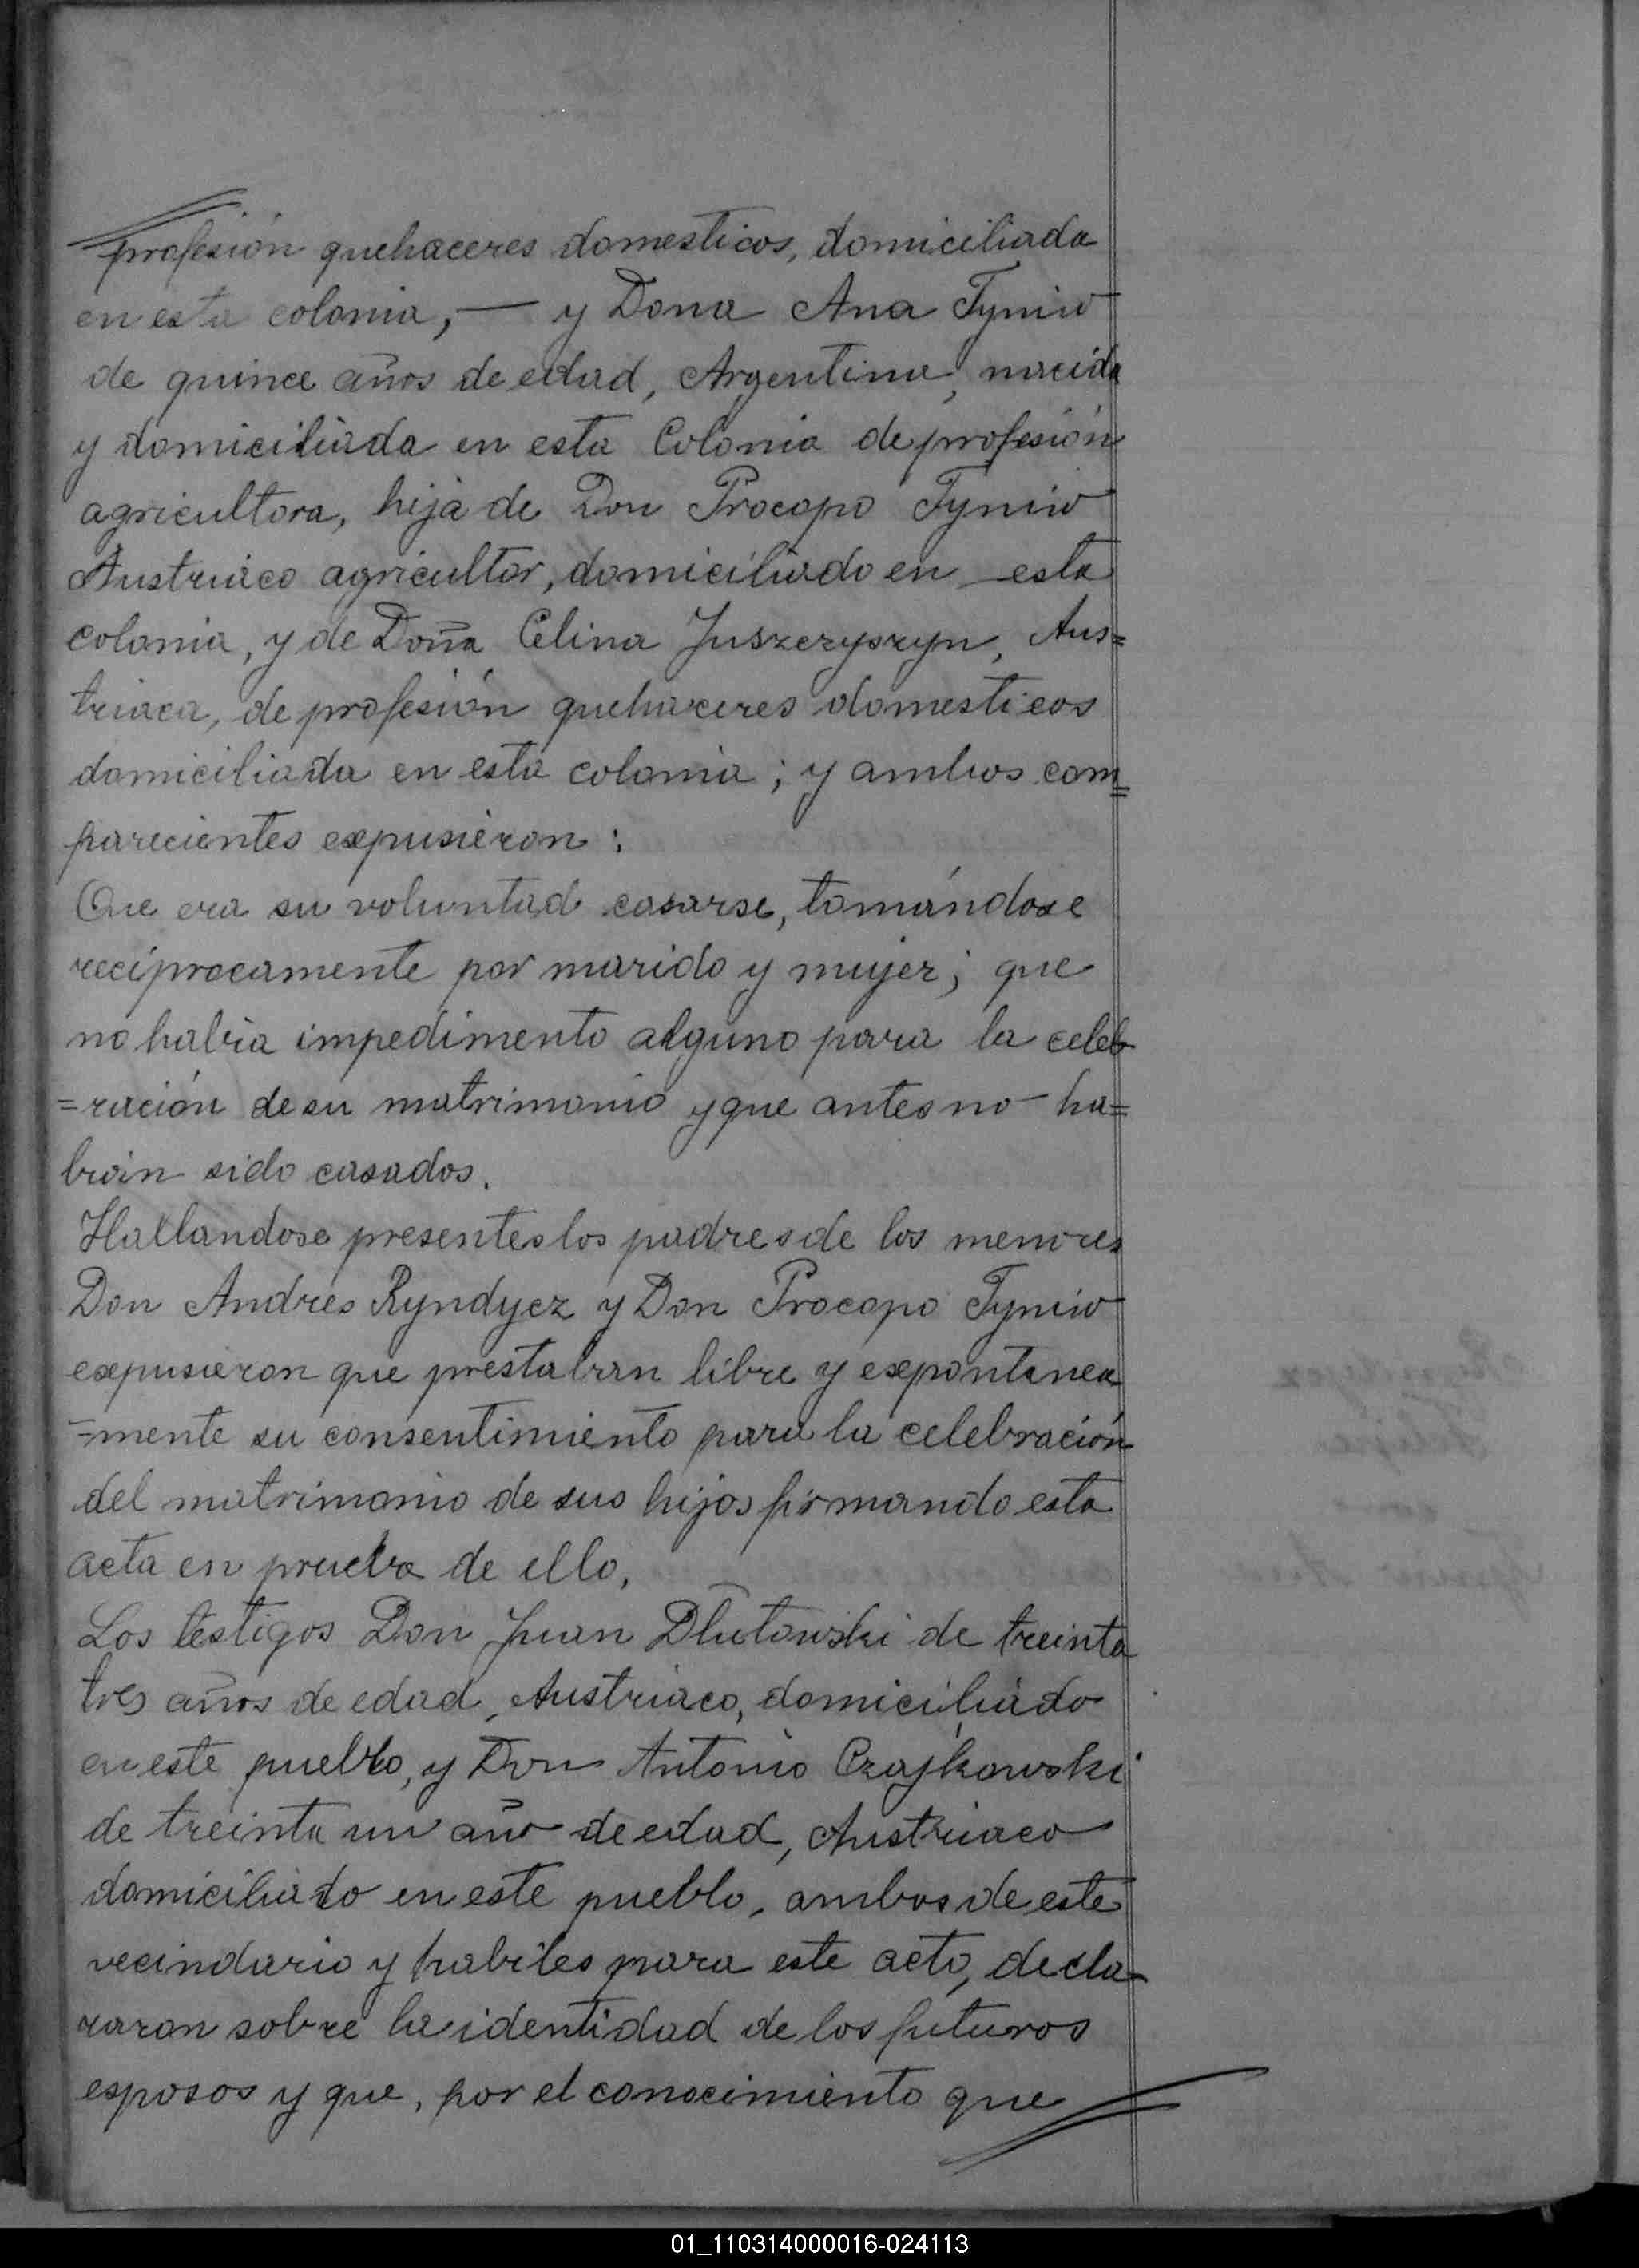 profesión quehaceres domesticos, domiciliada
en esta colonia, — y Dona Ana Tymiw
de quince años de edad, Argentina, nacida
y domiciliada en esta Colonia de profesión
agricultora, hija de Don Procopo Tymiw
Austriaco agricultor, domiciliado en esta
colonia, y de Doña Celina Juszczyszyn, Aus=
triaca, de profesión quehaceres domesticos
domiciliada en esta colonia; y ambos com=
parecientes expusieron:
Que era su voluntad casarse, tomándose
recíprocamente por marido y mujer; que
no habia impedimento alguno para la celeb
=ración de su matrimonio y que antes no ha=
bian sido casados.
Hallandose presentes los padres de los menores
Don Andrés Ryndycz y Don Procopo Tymiw
expusieron que prestaban libre y expontanea
=mente su consentimiento para la celebración
del matrimonio de sus hijos firmando esta
acta en prueba de ello.
Los testigos Don Juan Dlutowski de treinta
tres años de edad, Austriaco, domiciliado
en este pueblo, y Don Antonio Czajkowski
de treinta un año de edad, Austriaco
domiciliado en este pueblo, ambos de este
vecindario y habiles para este acto, decla-
raron sobre la identidad de los futuros
esposos y que, por el conocimiento que
01_110314000016-024113